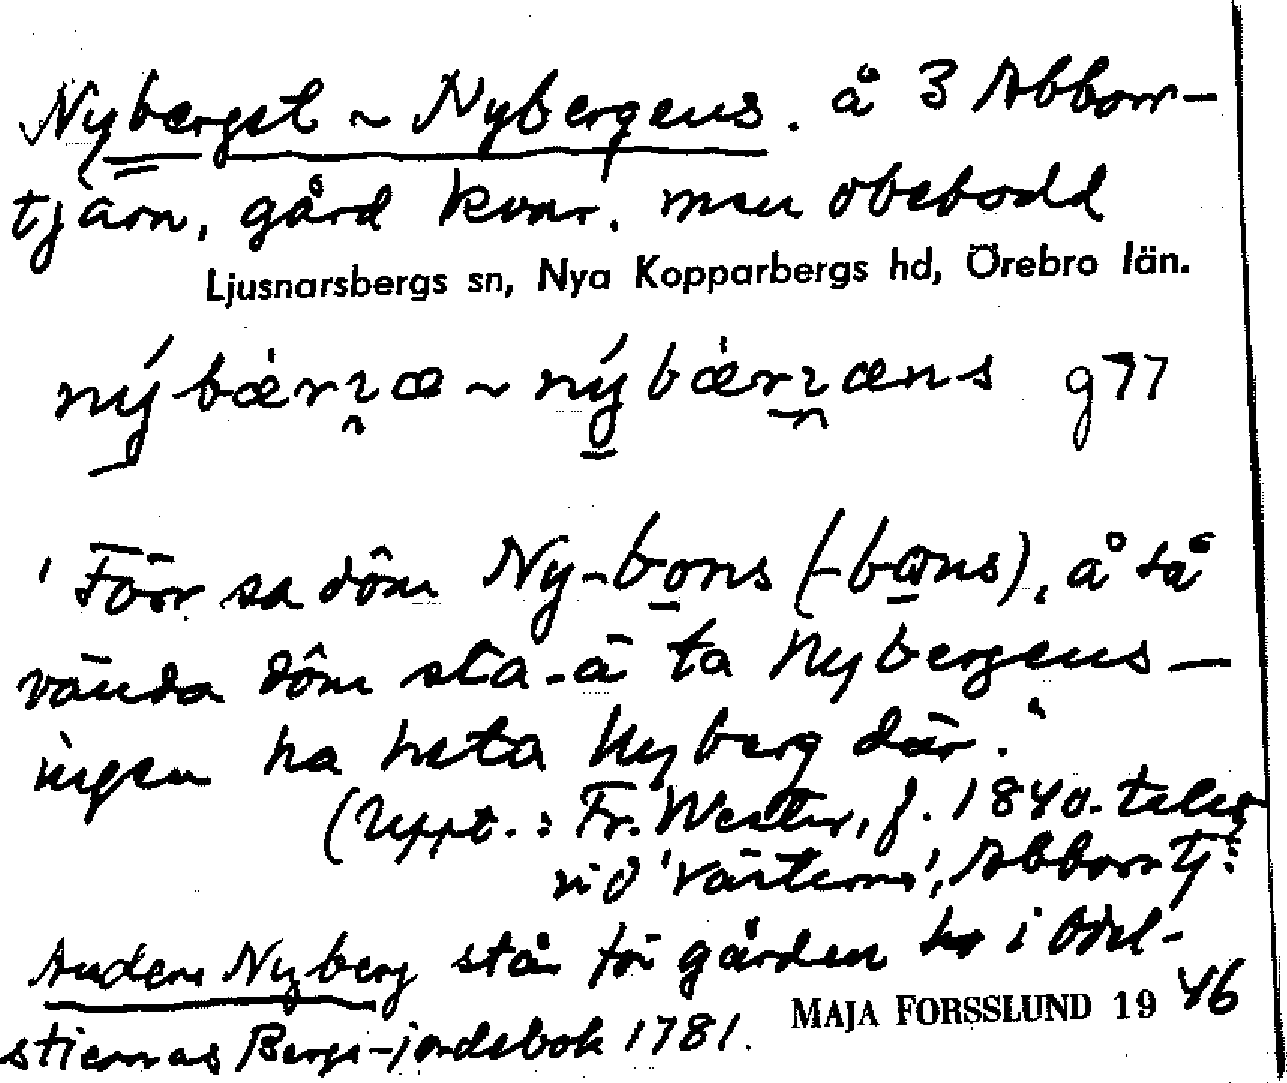 Nyberget ~ Nybergens. å 3 Abborr-
tjärn, gård kvar, men obebodd
Ljusnarsbergs sn, Nya Kopparbergs hd, Örebro län.
g 77
'Förr sa dôm Ny-bons (-bons), å så
vända dôm sta-å ta Nybergens —
ingen ha heta Nyberg där."
(Uppt.: Fr. Wester, f. 1840-talet
vid 'Västerns', Abborrtj:
Anders Nyberg står för gården i Odel-
stiernas Bergs-jordebok 1781.
MAJA FORSSLUND 1946